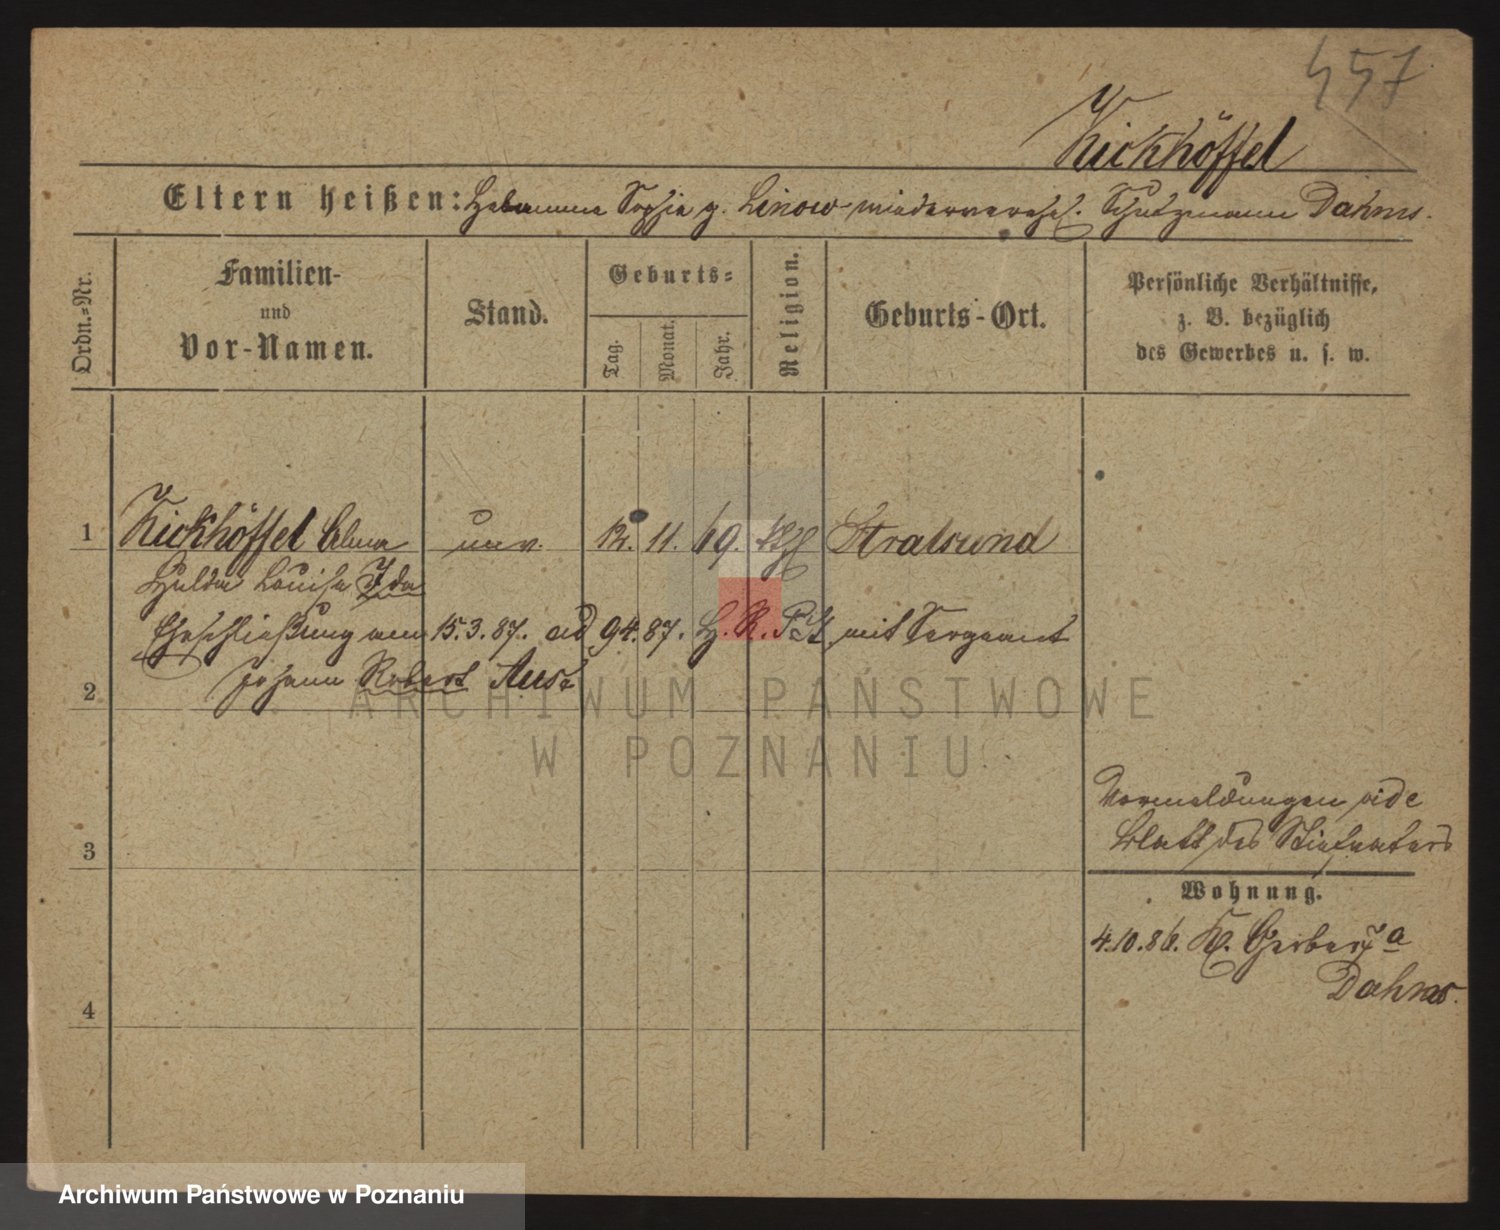 457
Kickhöffel
Eltern heißen: Hebamme Sophie g. Linow wiederverehel. Schutzmann Dahms.
Ordn.=Nr.
Familien-
und
Vor-Namen.
Stand.
Geburts=
Tag.
Monat.
Jahr.
Religion.
Geburts-Ort.
Persönliche Verhältnisse,
z. B. bezüglich
des Gewerbes u. s. w.
1 Kickhöffel Alma unv. 12. 11. 69. Stralsund
Hulda Louise Ida
Eheschließung am 15.3.87. ad 94.87. mit Sergeant
Johann Robert Aust
2
3
4
Vormeldungen vide
Blatt des Stiefvaters
Wohnung.
4.10.86. Kl. Gerberst a
Dahms.
ARCHIWUM PAŃSTWOWE
W POZNANIU
Archiwum Państwowe w Poznaniu